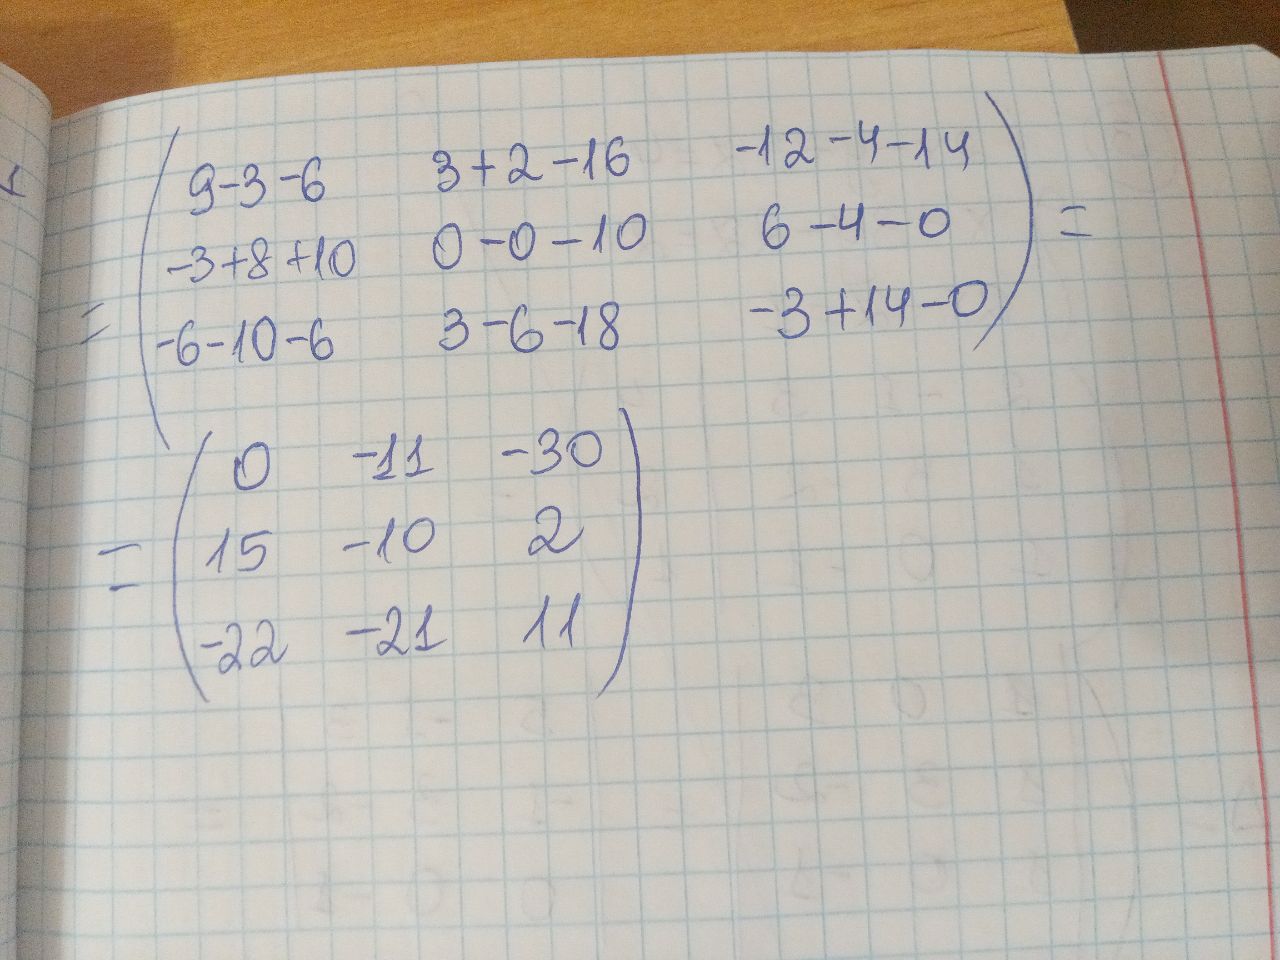 9-3-6 3+2-16 -12-4-14
-3+8+10 0-0-10 6-4-0 =
= -6-10-6 3-6-18 -3+14-0
0 -11 -30
= 15 -10 2
-22 -21 11